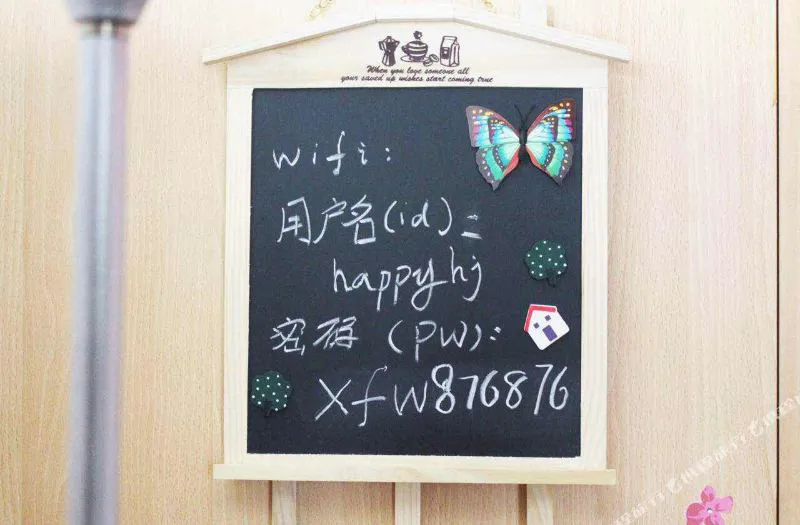 When you love someone all
your saved up wishes start coming true
wifi:
用户名(id):
happyhj
密码(pw):
xfw876876